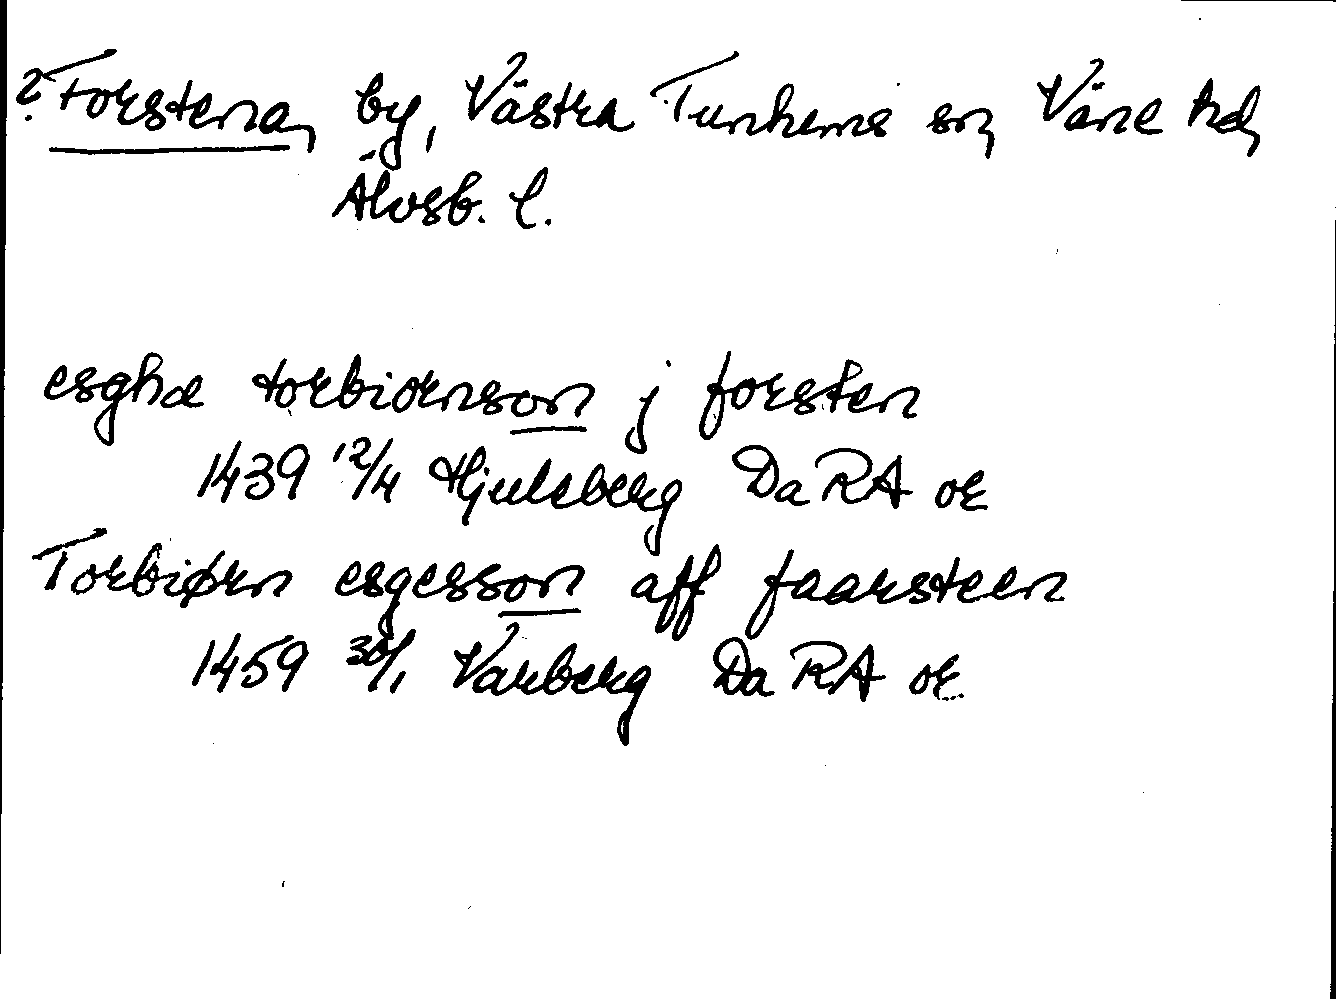 ? Forstena, by, Västra Tunhems sn, Väne hd,
Älvsb. l.
esghæ torbiornson j forsten
1439 12/4 Hjuleberg Da RA or
Torbiørn esgesson aff faarsteen
1459 30/1 Varberg Da RA or.